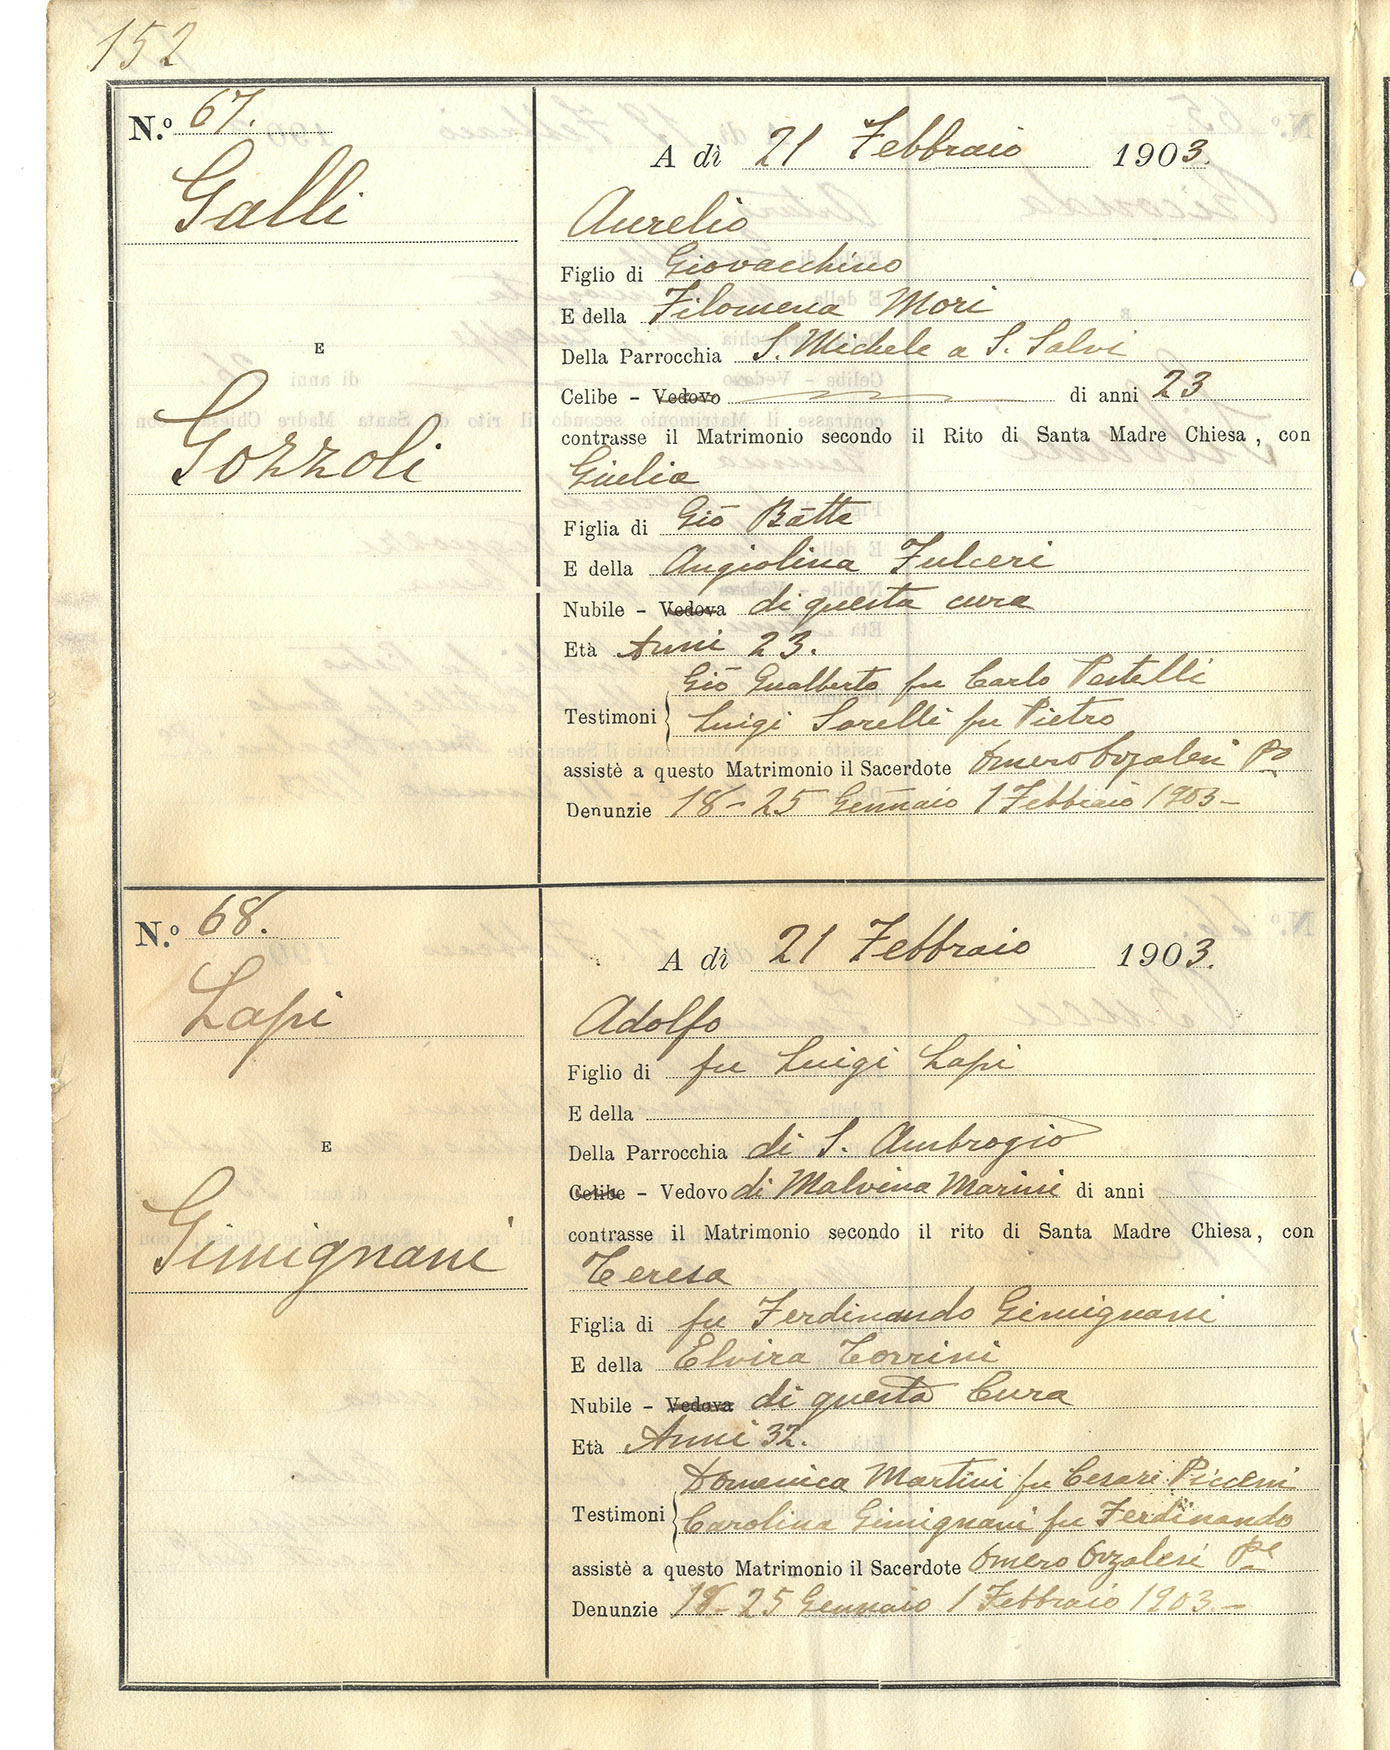 152
N.º 67.
Galli
E
Gozzoli
A dì 21 Febbraio 1903.
Aurelio
Figlio di Giovacchino
E della Filomena Mori
Della Parrocchia S. Michele a S. Salvi
Celibe - Vedovo di anni 23
contrasse il Matrimonio secondo il Rito di Santa Madre Chiesa, con
Giulia
Figlia di Gio Batta
E della Angiolina Fulceri
Nubile - Vedova di questa cura
Età Anni 23.
Gio Gualberto fu Carlo Pestelli
Testimoni Luigi Sorelli fu Pietro
assistè a questo Matrimonio il Sacerdote Omero Orzalesi
Denunzie 18-25 Gennaio 1 Febbraio 1903-
N.º 68.
Lapi
E
Gimignani
A dì 21 Febbraio 1903.
Adolfo
Figlio di fu Luigi Lapi
E della
Della Parrocchia di S. Ambrogio
Celibe - Vedovo di Malvina Marini di anni
contrasse il Matrimonio secondo il rito di Santa Madre Chiesa, con
Teresa
Figlia di fu Ferdinando Gimignani
E della Elvira Torrini
Nubile - Vedova di questa Cura
Età Anni 32.
Domenica Martini fu Cesari Picceni
Testimoni Carolina Gimignani fu Ferdinando
assistè a questo Matrimonio il Sacerdote Omero Orzalesi
Denunzie 18-25 Gennaio 1 Febbraio 1903.-